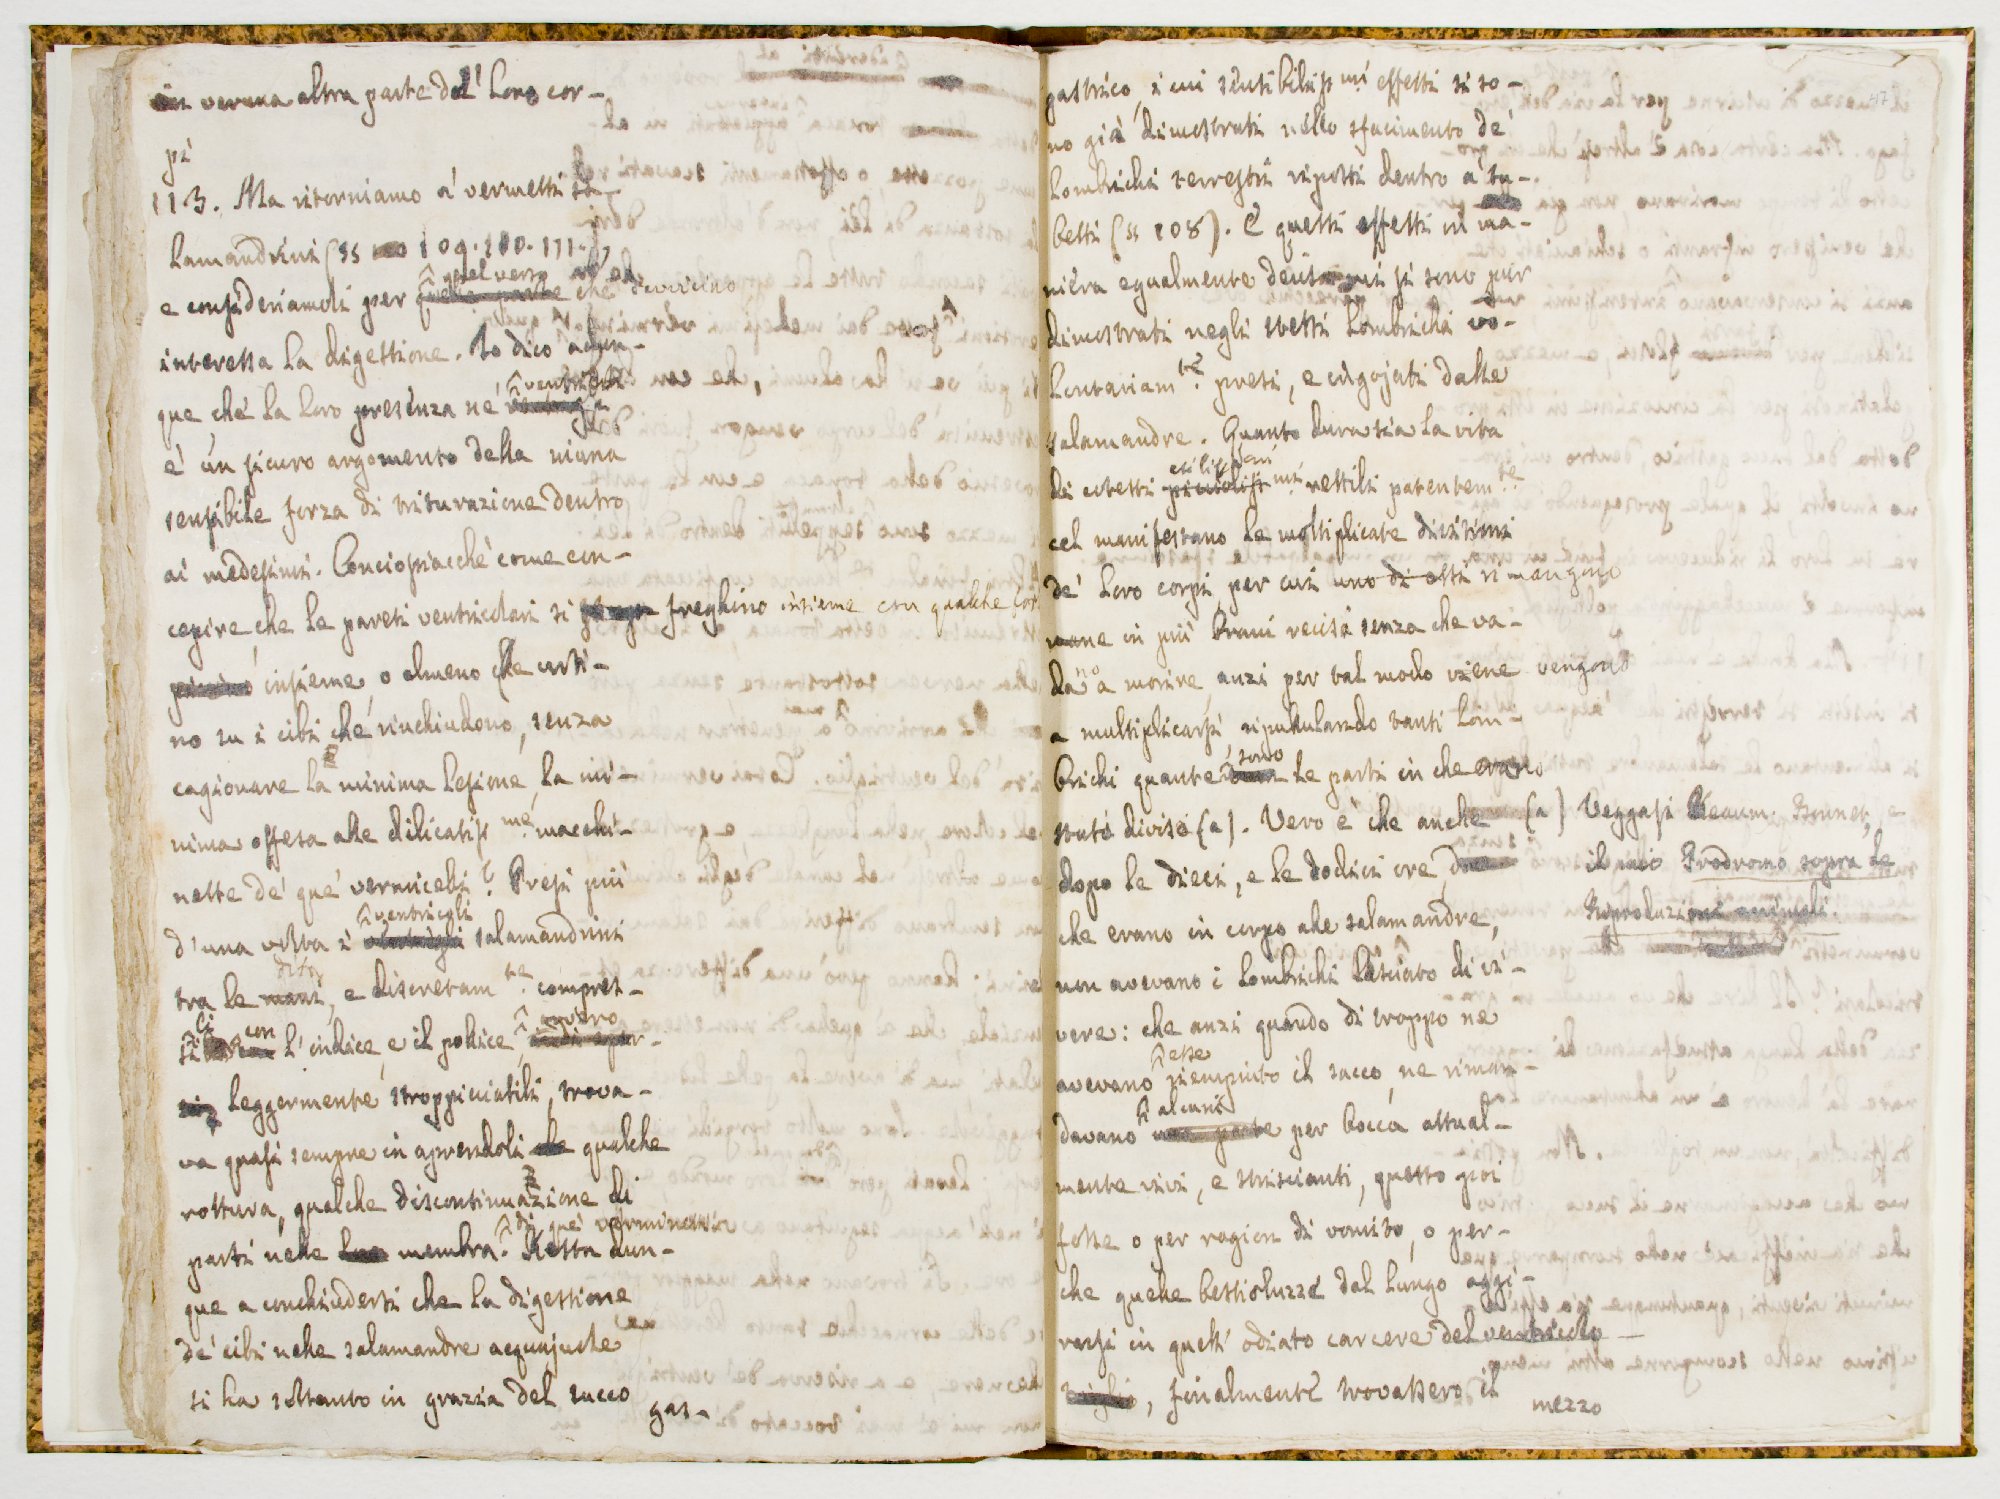 in veruna altra parte del loro cor-
pi
113. Ma ritorniamo a' vermetti sa-
lamandrini (§§ 109. 110. 111.),
e consideriamoli per quella parte che
quel verso
interessa la digestione. Io dico adun-
que che la loro presenza ne' ventricoli
è un sicuro argomento della niuna
sensibile forza di triturazione dentro
ai medesimi. Conciossiacchè come con-
cepire, che le pareti ventricolari si freghino insieme con qualche for
insieme, o almeno che urti-
no su i cibi che rinchiudono, senza
cagionare la minima lesione, la mi-
nima offesa alle dilicatiss.me macchi-
nette de' que' vermicelli? Presi più
d'una volta i ventricoli salamandrini
tra le dita, e discretam.te compres-
sili con l'indice, e il pollice, ovvero
leggermente stroppicciatili, trova-
va quasi sempre in aprendoli qualche
rottura, qualche discontinuazione di
parti nelle membra di que' verminetti. Resta dun-
que a conchiudersi che la digestione
de' cibi nelle salamandre acquajuole
si ha soltanto in grazia del succo
gas-
47
gastrico, i cui sensibiliss.mi effetti si so-
no già dimostrati nello sfacimento de'
lombrichi terrestri riposti dentro a' tu-
betti (§§ 108). E questi effetti in ma-
niera egualmente si sono pur
dimostrati negli stessi lombrichi vo-
lontariam.te presi, e ingojati dalle
salamandre. Quanto dura sia la vita
di cotesti esilissimi rettili patentem.te
cel manifestano le moltiplicate divisioni
de' loro corpi, per cui uno di essi rimangono
mane in più brani recisi senza che va-
dano a morire, anzi per tal modo viene vengono
a multiplicarsi, ripullulando tanti lom-
brichi quante sono le parti in che erano
stato diviso (a). Vero è che anche
dopo le dieci, e le dodici ore,
che erano in corpo alle salamandre,
non avevano i lombrichi lasciato di vi-
vere: che anzi quando di troppo ne
avevano esse riempiuto il sacco, ne riman-
davano alcuni per bocca attual-
mente vivi, e striscianti, questo poi
fosse o per ragion di vomito, o per-
che quelle bestioluzze dal lungo aggi-
rarsi in quell' odiato carcere del ventricolo
, finalmente trovassero il
mezzo
(a) Veggasi Reaum. Bonnet, e
il mio Prodromo sopra le
Riproduzioni animali.